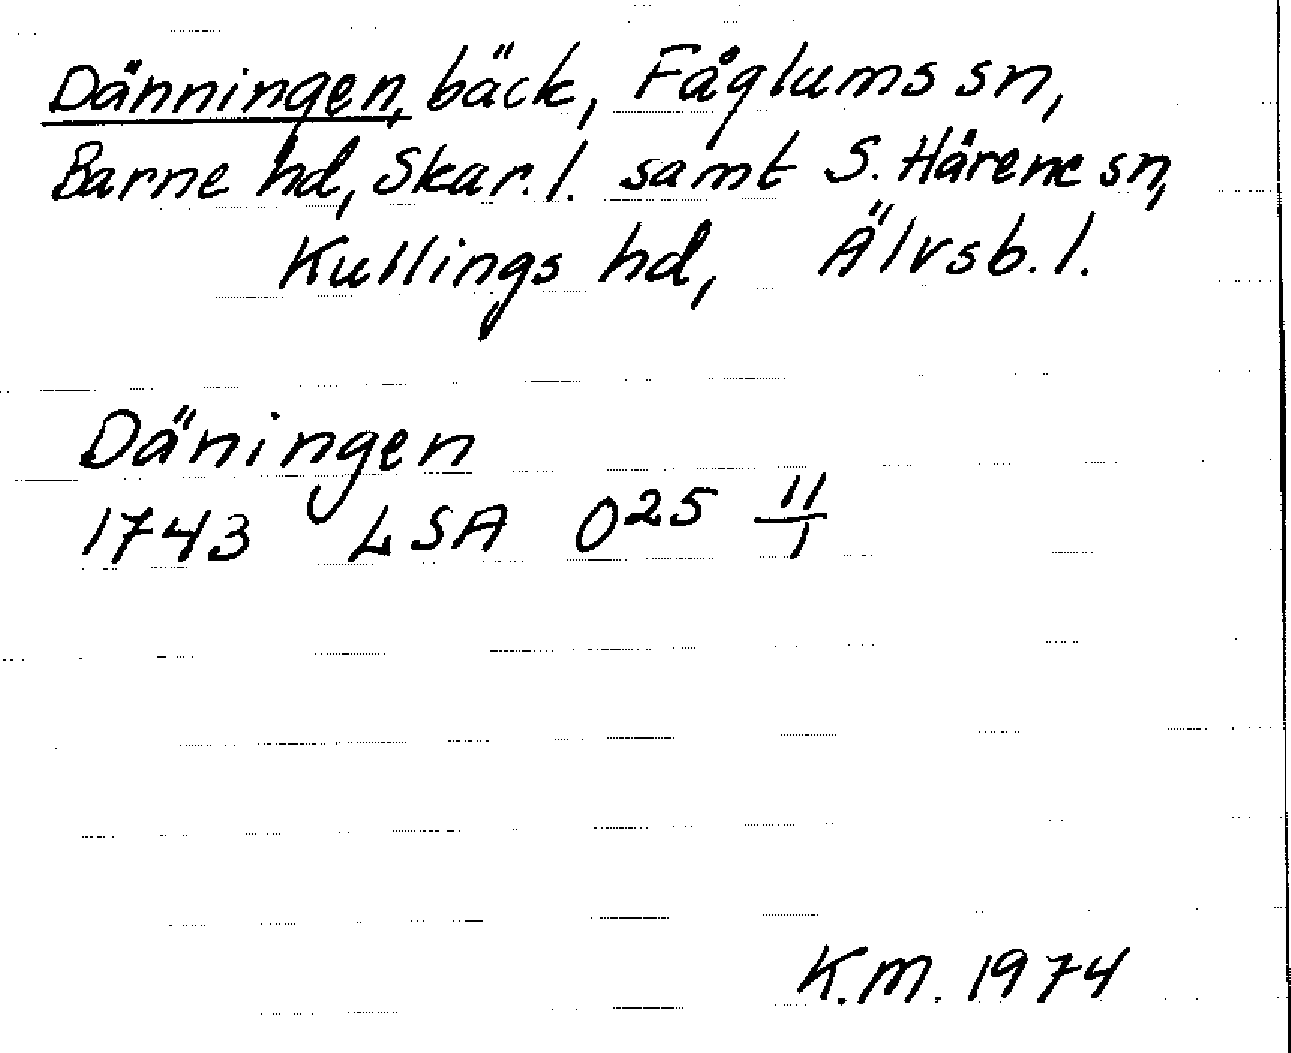 Dänningen, bäck, Fåglums sn,
Barne hd, Skar. l. samt S. Härene sn,
Kullings hd, Älvsb. l.
Däningen
1743 LSA O25 11/1
K.M. 1974